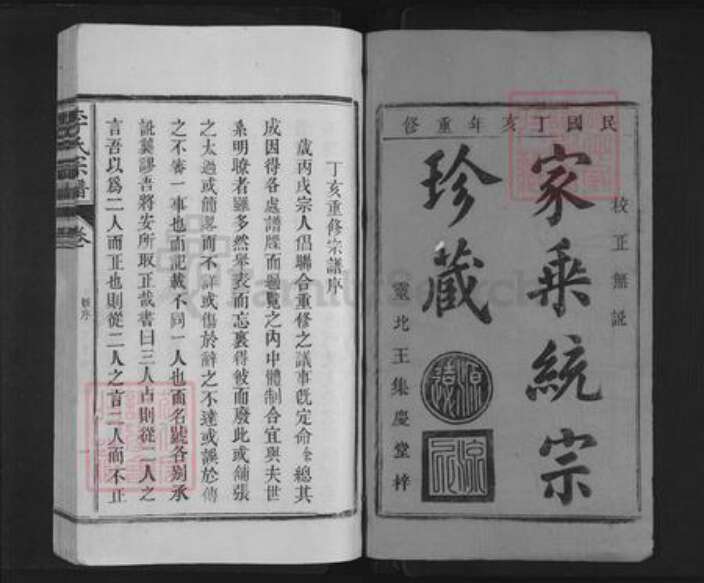 民國丁亥年重修
校正無訛
家乘統宗
珍藏
靈北王集慶堂梓
丁亥重修宗譜序
歲丙戌宗人倡聯合重修之議事旣定命余總其
成因得各處譜牒而題覽之內中體制合宜與夫世
系明瞭者雖多然舉表而忘裏得彼而廢此或鋪張
之太過或簡畧而不詳或傷於辭之不達或誤於傳
之不審一事也而記載不同一人也而名號各别承
訛襲謬吾將安所取正哉書曰三人占則從二人之
言吾以爲二人而正也則從二人之言二人而不正
氏宗譜
卷
序